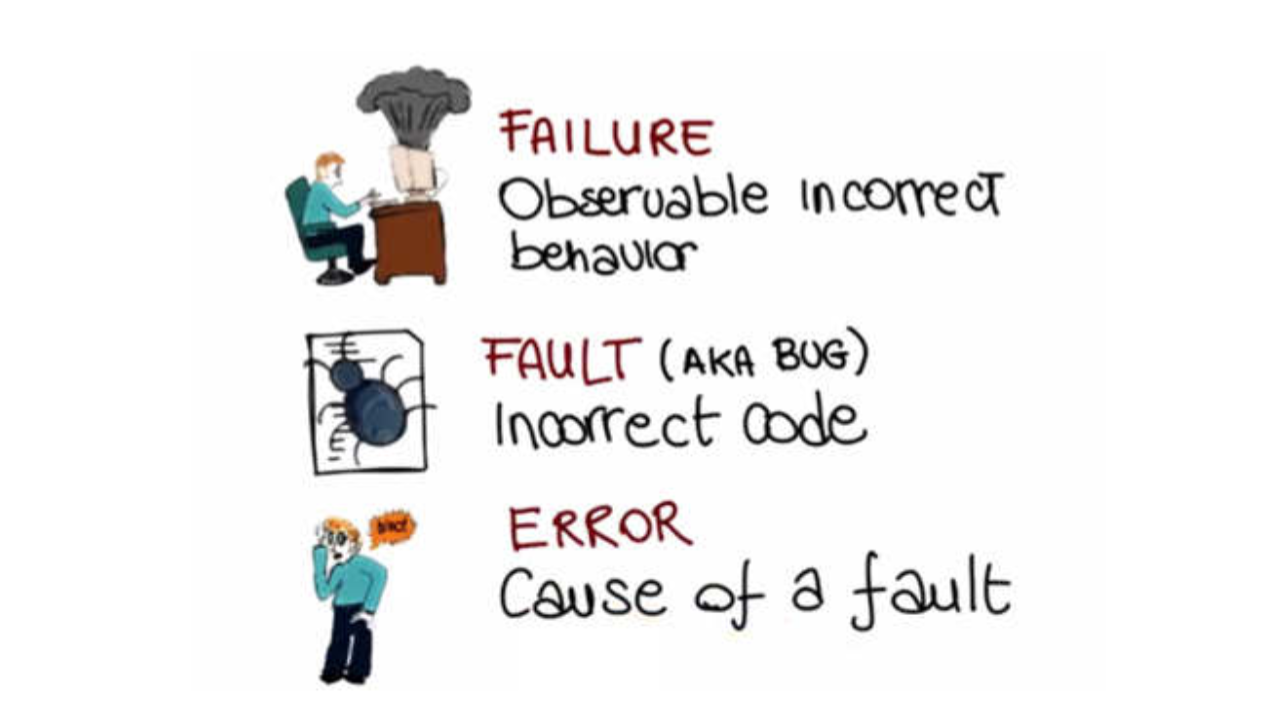 FAILURE
Observable incorrect
behavior
FAULT (AKA BUG)
Incorrect code
ERROR
Cause of a fault